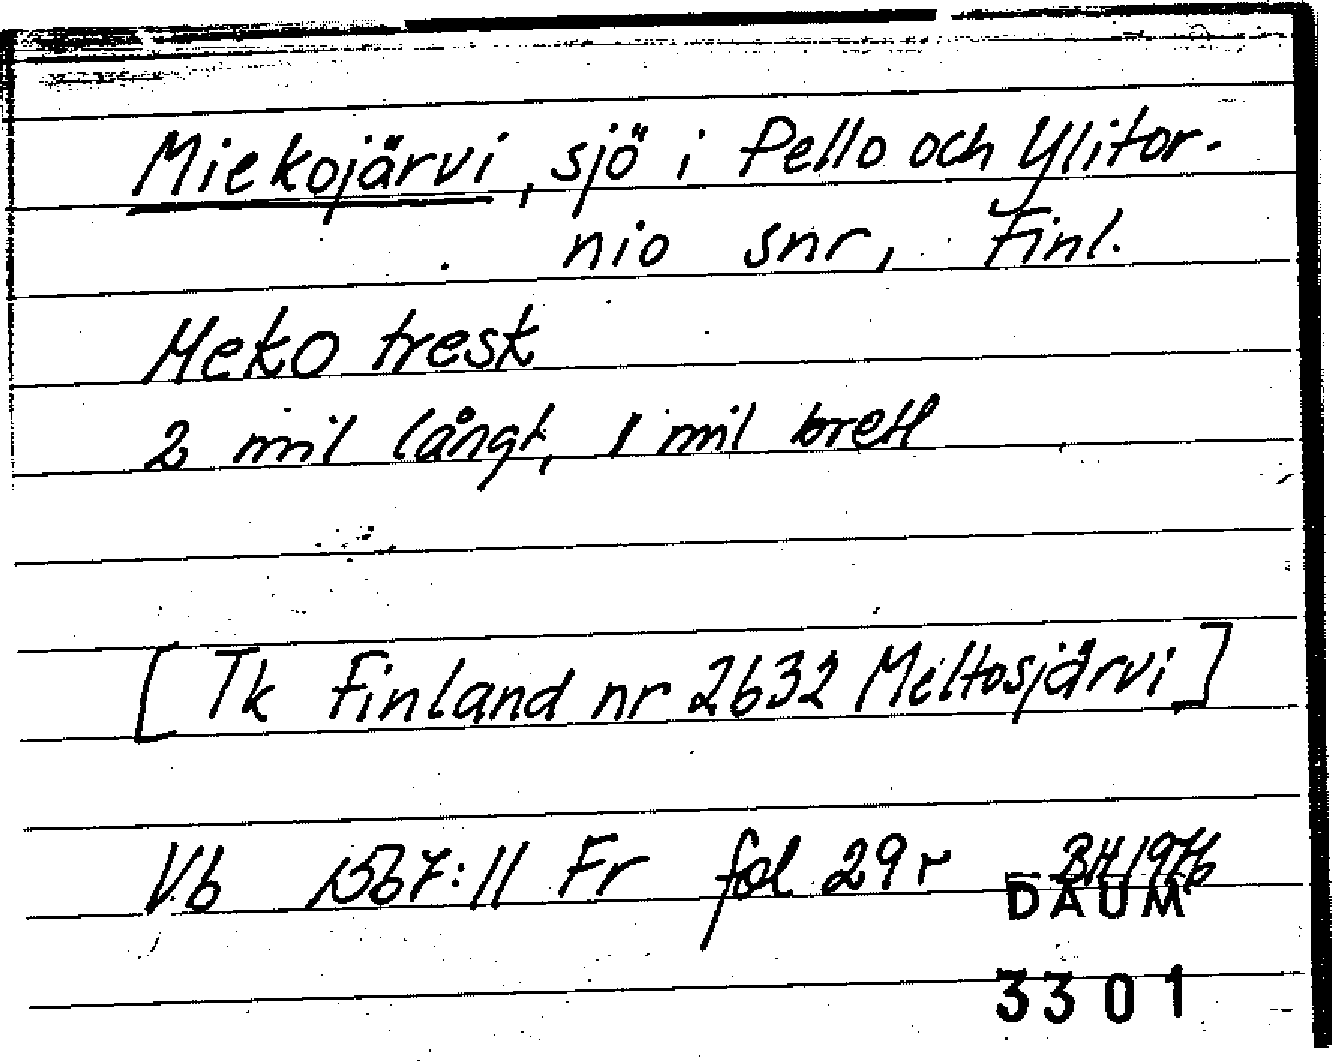 Miekojärvi, sjö i Pello och Ylitor-
nio snr, Finl.
Meko tresk
2 mil långt, 1 mil brett
[Tk Finland nr 2632 Meltosjärvi]
Vb 1567:11 Fr fol 29 r BH 1976
DAUM
3301